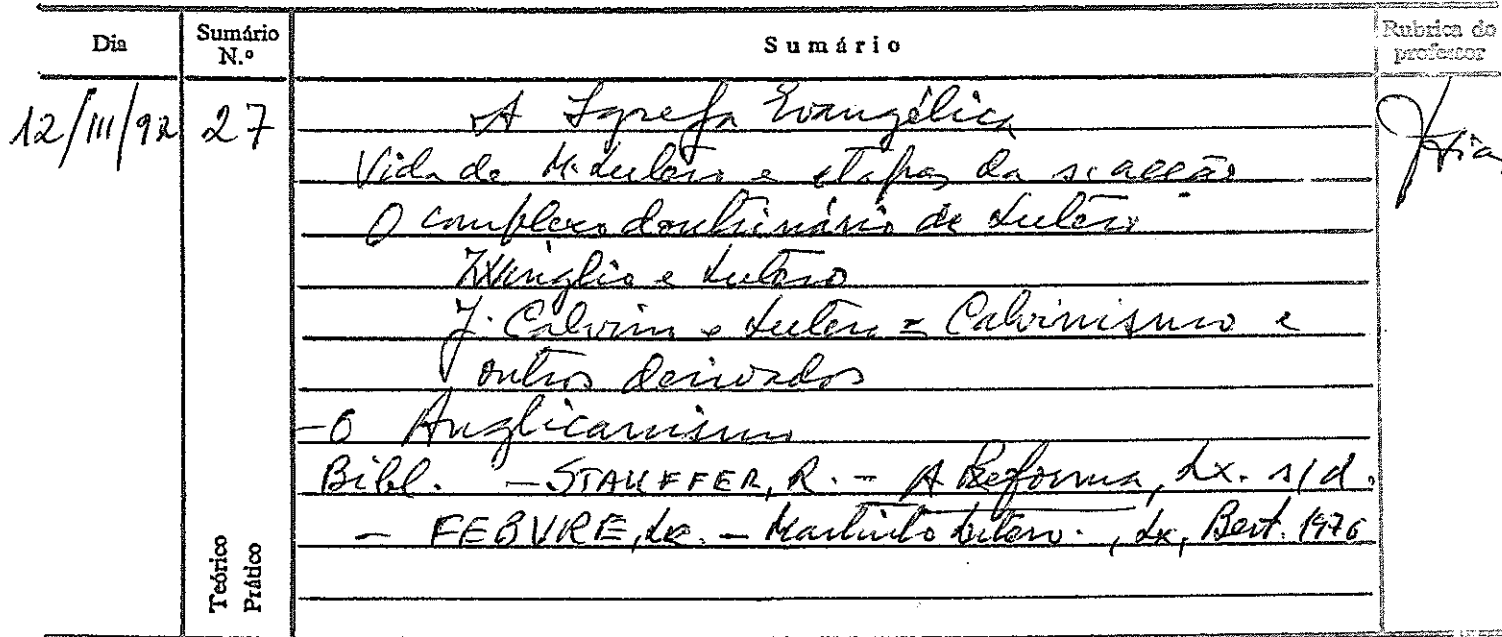 Dia Sumário N.º Sumário Rubrica do professor
12/III/92 27 A Igreja Evangélica
Vida de M. Lutero e etapas da s. acção
O complexo doutrinário de Lutero
Zwinglio e Lutero
J. Calvino e Lutero = Calvinismo e
outros derivados
- O Anglicanismo
Bibl. - STAUFFER, R. - A Reforma, Lx. s/d.
- FEBVRE, Lc. - Martinho Lutero., Lx, Bert. 1976
Teórico
Prático